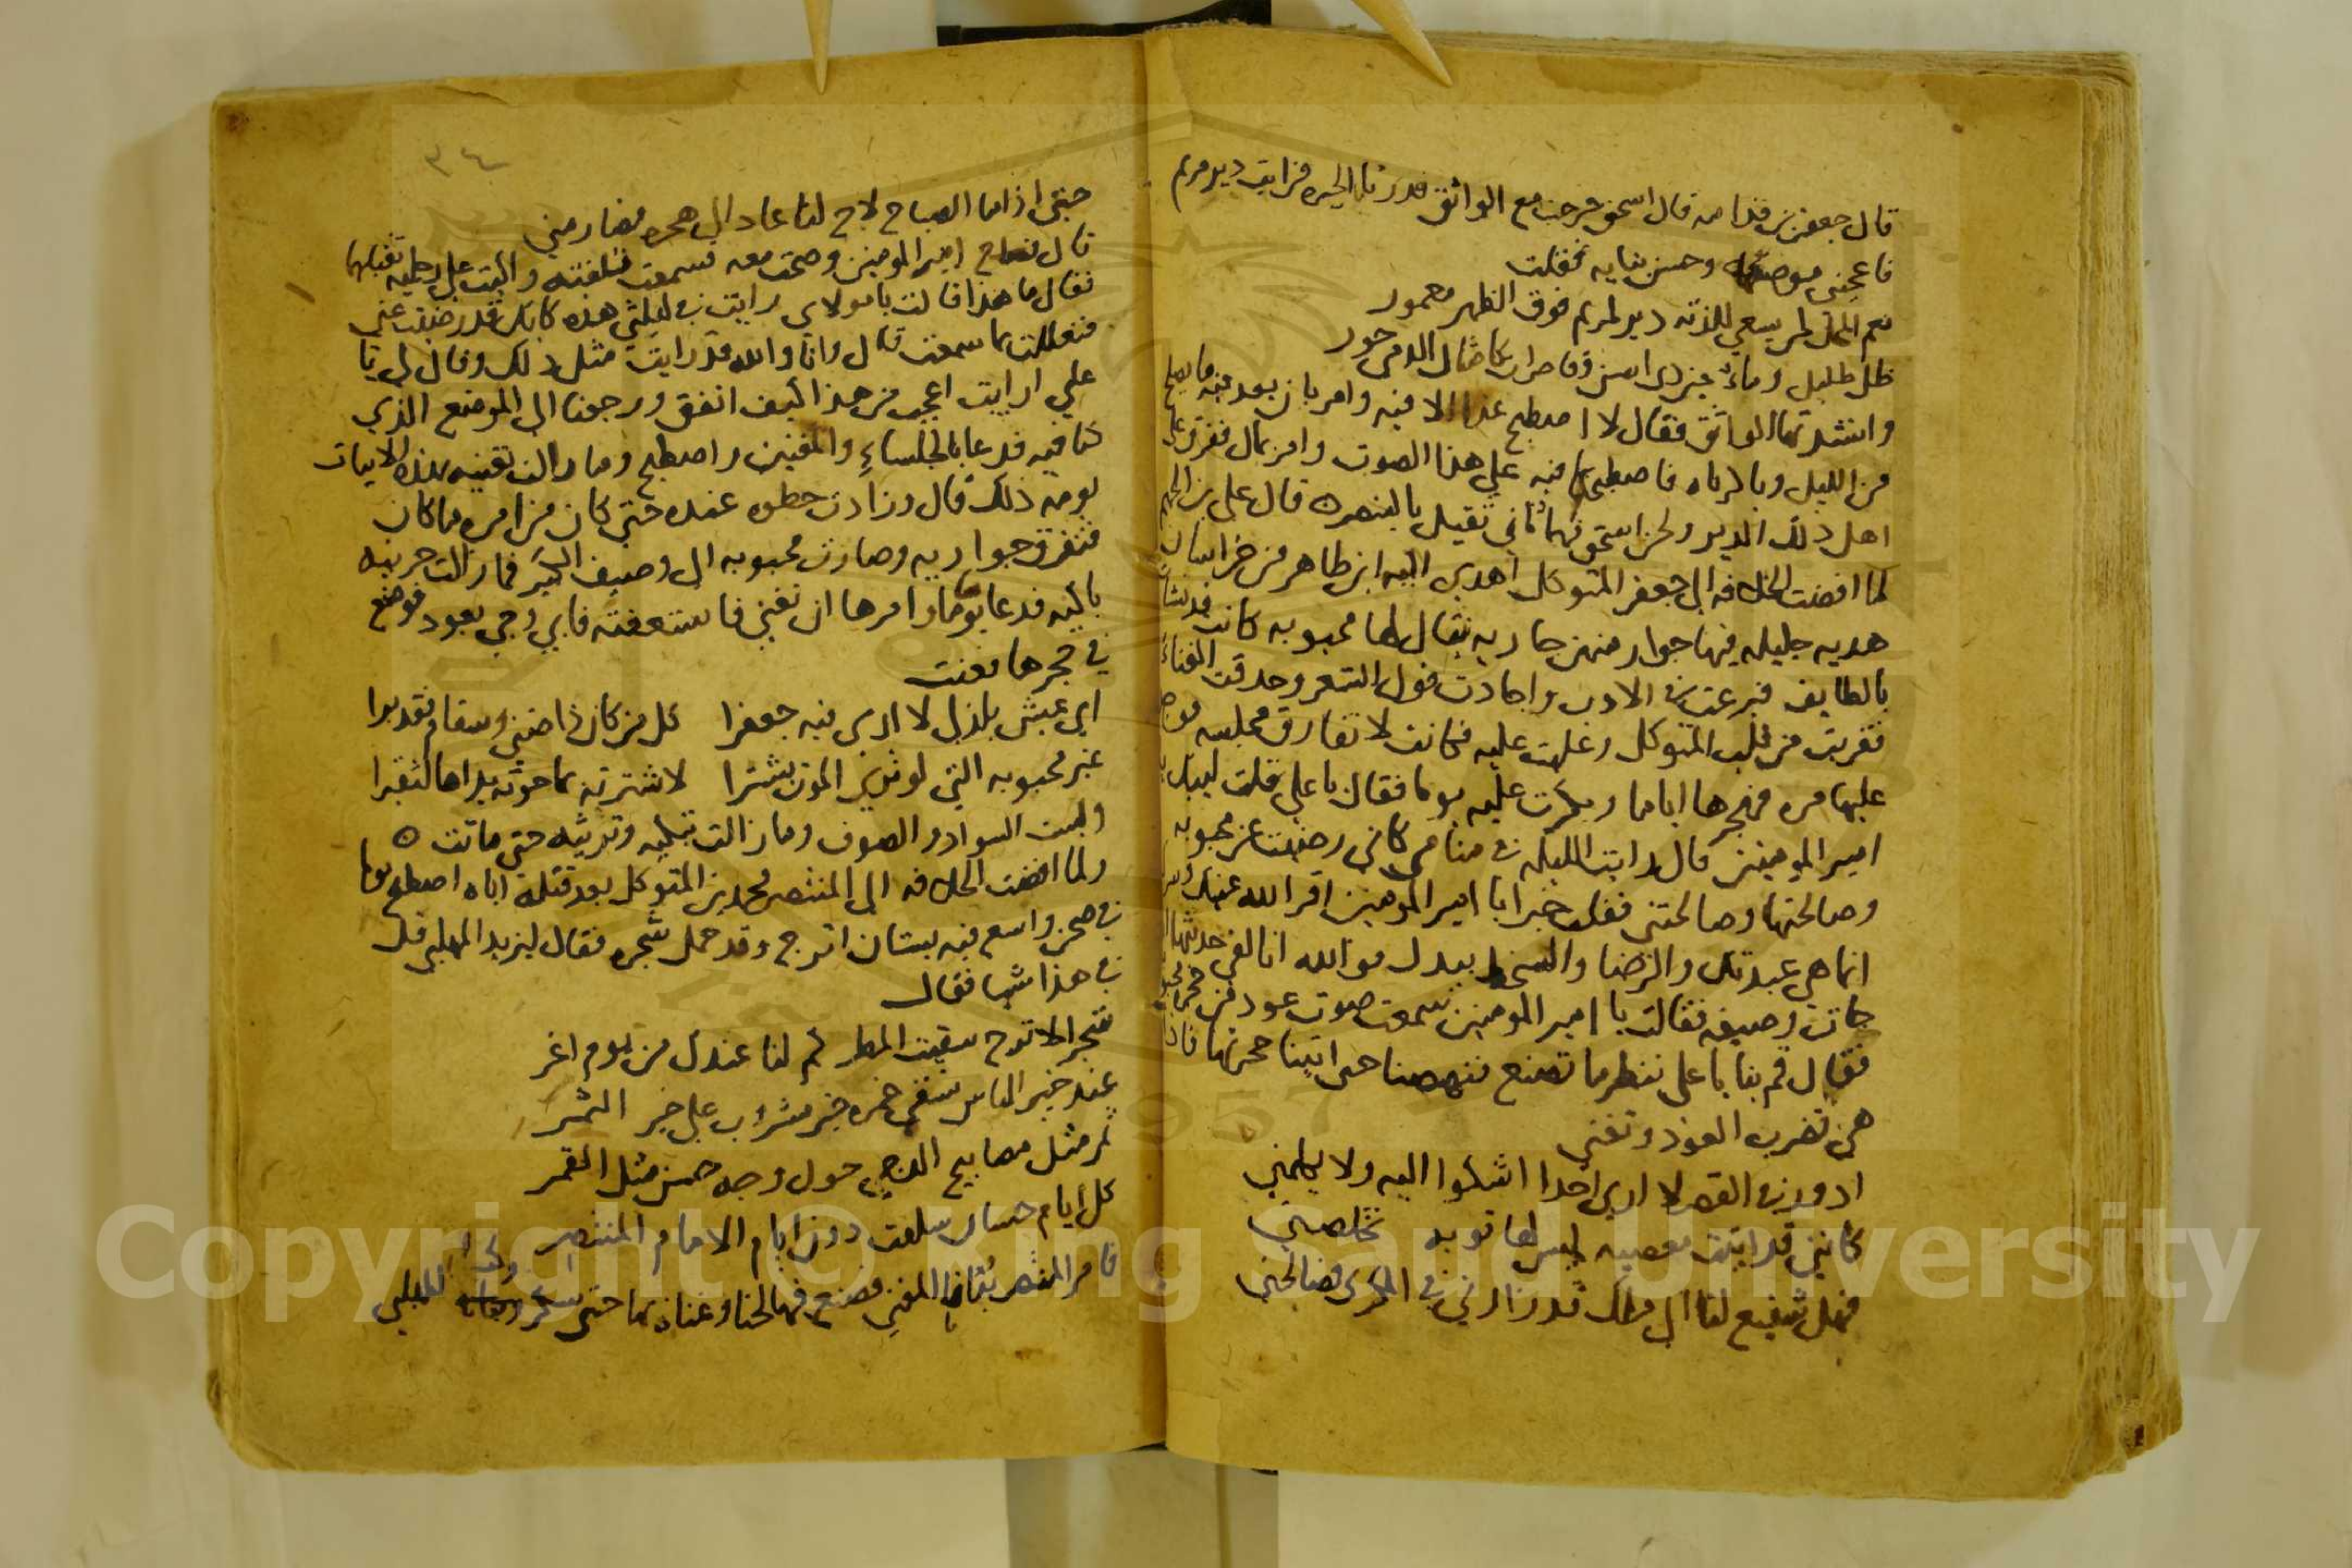 قال جعفر بن قدامه قال اسحق خرجت مع الواثق فدرنا الحيره فرايت دير مريم
فاعجبني موضعه وحسن بنايه فقلت
نعم المحل لمن يسعي للذته دير لمريم فوق الظهر معمور
ظل ظليل وماء غير ذي اسن وقاصرات كامثال الدمي حور
وانشدتها الواثق فقال لا اصطبح غدا الا فيه وامر بان يعد فيه ما يصلح
من الليل وباكرناه فاصطبحنا فيه علي هذا الصوت وامر بمال ففرق علي
اهل ذلك الدير ولحن اسحق فيها ثاني ثقيل بالبنصر ه قال علي بن الجهم
لما افضت الخلافه الي جعفر المتوكل اهدي اليه ابن طاهر من خراسان
هديه جليله فيها جوار منهن جاريه يقال لها محبوبه كانت قد نشات
بالطايف فبرعت في الادب واجادت قول الشعر وحدقت الغناء
فقربت من قلب المتوكل وغلبت عليه فكانت لا تفارق مجلسه فوجد
عليها مره فهجرها اياما وبكرت عليه يوما فقال يا علي قلت لبيك يا
امير المومنين قال رايت الليله في منامي كاني رضيت عن محبوبه
وصالحتها وصالحتني فقلت خيرا يا امير المومنين اقر الله عينك وسرك
انما هي عبدتك والرضا والسخط بيدك فوالله انا لفي حديثها اذ
جات وصيفه فقالت يا امير المومنين سمعت صوت عود من حجره محبوبه
فقال قم بنا يا علي ننظر ما تصنع فنهضنا حتي اتينا حجرتها فاذا
هي تضرب العود وتغني
ادور في القصر لا اري احدا اشكوا اليه ولا يكلمني
كانني قد اتيت معصيه ليس لها توبه تخلصني
فهل شفيع لنا الي ملك قد زارني في الكري فصالحني
٣٤
حتي اذا ما الصباح لاح لنا عاد الي هجره فصارمني
قال فصاح امير المومنين وصحت معه فسمعت فتلقته واكبت علي رجليه تقبلهما
فقال ما هذا قالت يا مولاي رايت في ليلتي هذه كانك قد رضيت عني
فتعللت بما سمعت قال وانا والله قد رايت مثل ذلك وقال لي يا
علي ارايت اعجب من هذا كيف اتفق ورجعنا الي الموضع الذي
كنا فيه فدعا بالجلساء والمغنين واصطبح وما زالت تغنيه بهذه الابيات
يومه ذلك قال وزادت حظوه عنده حتي كان من امره ما كان
فتفرق جواريه وصارت محبوبه الي وصيف الكبير فما زالت حزينه
باكيه فدعا يوما وامرها ان تغني فاستعفته فابي وجي بعود فوضع
في حجرها فغنت
اي عيش يلذ لي لا اري فيه جعفرا كل من كان ذا ضني وسقام فقد برا
غير محبوبه التي لو تري الموت يشترا لاشترته بما حوته يداها لتقبرا
ولبست السواد والصوف وما زالت تبكيه وترثيه حتي ماتت ه
ولما افضت الخلافه الي المنتصر محمد بن المتوكل بعد قتله اباه اصطبح يوما
في صحن واسع فيه بستان اترج وقد حمل شجره فقال ليزيد المهلبي قل
في هذا شيا فقال
شجر الاترج سقيت المطر كم لنا عندك من يوم اغر
عند خير الناس نسقي خمره خير مشروب علي خير الثمر
ثمر مثل مصابيح الدجي حول وجه حسن مثل القمر
كل ايام حسان سلفت دون ايام الامام المنتصر
فامر المنتصر بنان المغني فصنع فيها لحنا وغناه بها حتي سكر للمهلبي